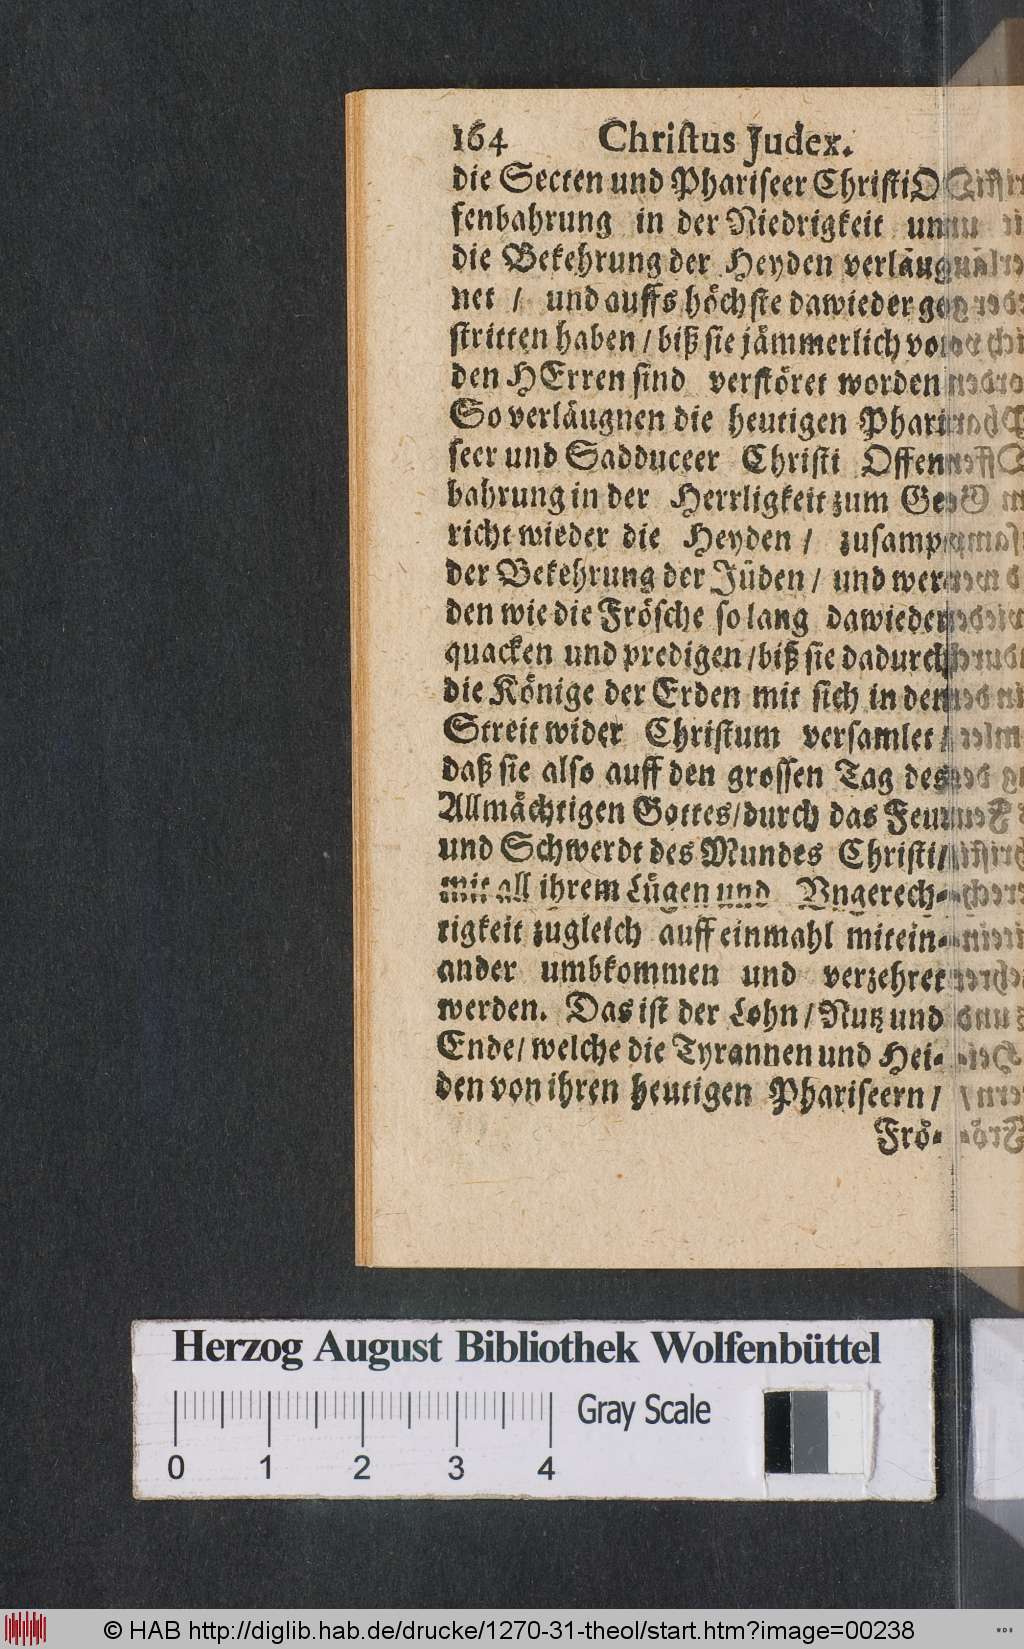 164 Christus Judex.
die Secten und Phariseer Christi Of-
fenbahrung in der Niedrigkeit un
die Bekehrung der Heyden verläug
net / und auffs höchste dawieder ge
stritten haben / biß sie jämmerlich von
den HErren sind verstöret worden
So verläugnen die heutigen Phari
seer und Sadduceer Christi Offen
bahrung in der Herrligkeit zum Ge
richt wieder die Heyden / zusamp
der Bekehrung der Jüden / und wer
den wie die Frösche so lang dawieder
quacken und predigen / biß sie dadurch
die Könige der Erden mit sich in den
Streit wider Christum versamlet /
daß sie also auff den grossen Tag des
Allmächtigen Gottes / durch das Feur
und Schwerdt des Mundes Christi /
mit all ihrem Lügen und Vngerech-
tigkeit zugleich auff einmahl mitein-
ander umbkommen und verzehret
werden. Das ist der Lohn / Nutz und
Ende / welche die Tyrannen und Hei-
den von ihren heutigen Phariseern /
Frö-
Herzog August Bibliothek Wolfenbüttel
Gray Scale
0 1 2 3 4
© HAB http://diglib.hab.de/drucke/1270-31-theol/start.htm?image=00238